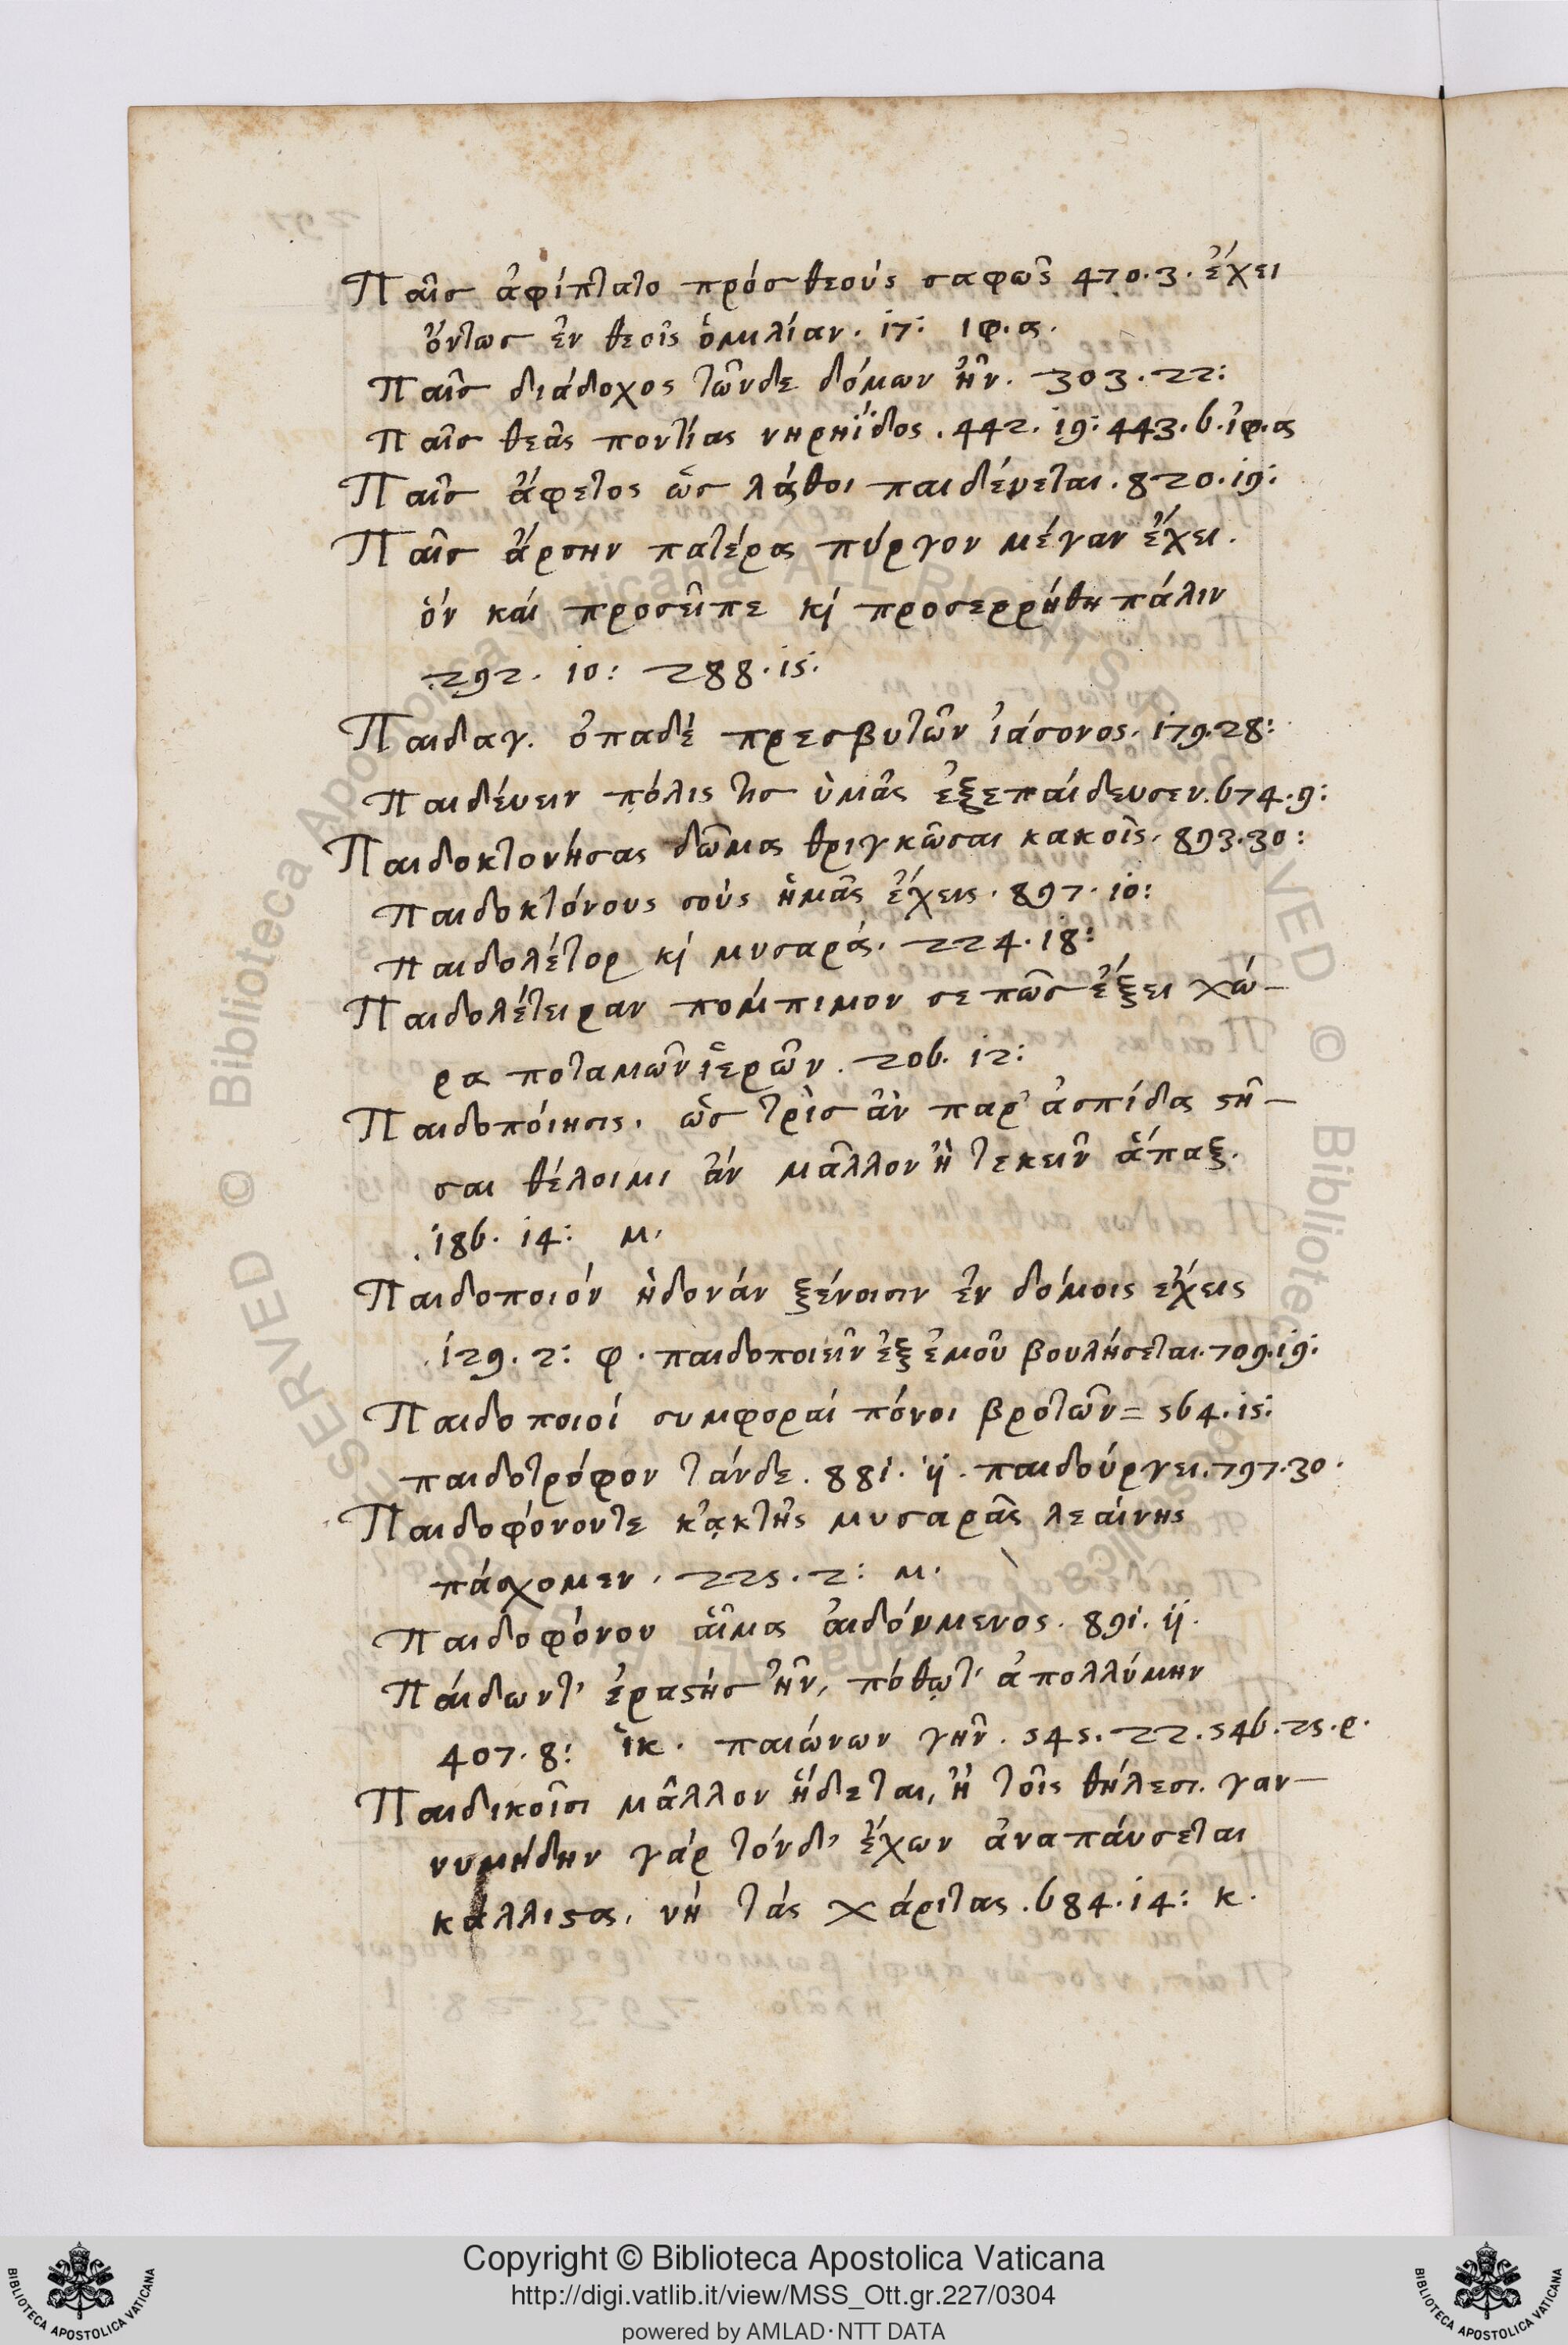 Παῖσ ἀφίπτατο πρόσ θεούς σαφῶς 470·3· ἔχει
ὄντωσ ἐν θεοῖς ὁμιλίαν· 17: ιφ·α·
Παῖσ διάδοχος τῶνδε δόμων ἦν· 303·22:
Παῖσ θεᾶς ποντίας νηρηΐδος·442·19:443·6·ἰφ·α
Παῖσ ἄφετος ὡσ λάθοι παιδεύεται·820·19:
Παῖσ ἄρσην πατέρα πύργον μέγαν ἔχει·
ὁν καί προσεῖπε κὶ προσερρήθη πάλιν
292· 10: 288·15:
Παιδαγ· ὀπαδέ πρεσβυτῶν ἰάσονος·179·28:
Παιδεύειν πόλις τισ ὑμᾶς ἐξεπαίδευσεν·674·9:
Παιδοκτονήσας δῶμα θριγκῶσαι κακοῖς·893·30:
Παιδοκτόνους σούς ἡμᾶς ἔχεις·897·10:
Παιδολέτορ κὶ μυσαρά· 224·18:
Παιδολέτειραν πόμπιμον σε πῶσ ἕξει χώ-
ρα ποταμῶν ἱερῶν· 206·12:
Παιδοπόιησις· ὡσ τρὶσ ἂν παρ' ἀσπίδα ϛῆ-
σαι θέλοιμι ἄν μᾶλλον ἢ τεκεῖν ἅπαξ·
·186·14: μ·
Παιδοποιόν ἡδονάν ξένοισιν ἐν δόμοις ἔχεις
·129·2: φ·παιδοποιεῖν ἐξ ἐμοῦ βουλήσεται·709·19:
Παιδοποιοί συμφοραί πόνοι βροτῶν= 564·15:
παιδοτρόφον τάνδε·881·ij·παιδούργει·797·30·
Παιδοφόνοντε κᾀκτῆς μυσαρᾶς λεαίνης
πάσχομεν· 225·2: μ·
Παιδοφόνον αἷμα ἀιδόυμενος·891·ij·
Πάιδων τ' ἐραϛήσ ἦν, πόθῳ τ' ἀπολλύμην
407·8: ἱκ· παιώνων γῆν·545·22·546·25·ρ·
Παιδικοῖσι μᾶλλον ἥδεται, ἢ τοῖς θήλεσι· γαν-
νυμήδην γάρ τόνδ' ἔχων ἀναπάυσεται
κάλλιϛα, νή τάς χάριτας·684·14: κ·
Copyright © Biblioteca Apostolica Vaticana
http://digi.vatlib.it/view/MSS_Ott.gr.227/0304
powered by AMLAD·NTT DATA